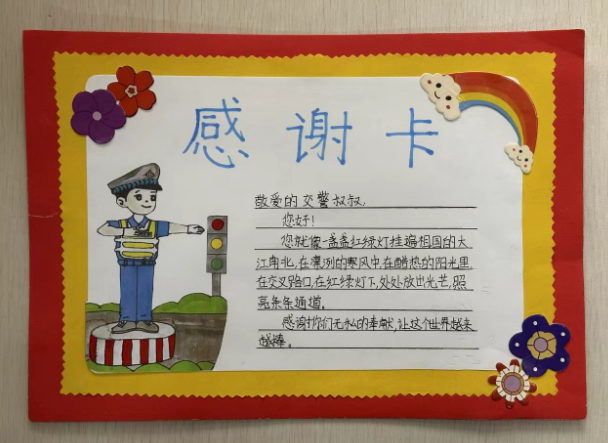 感谢卡
敬爱的交警叔叔:
您好!
您就像一盏盏红绿灯挂遍祖国的大
江南北,在凛冽的寒风中,在酷热的阳光里
在交叉路口,在红绿灯下,处处放出光芒,照
亮条条通道。
感谢你们无私的奉献,让这个世界越来
越棒。